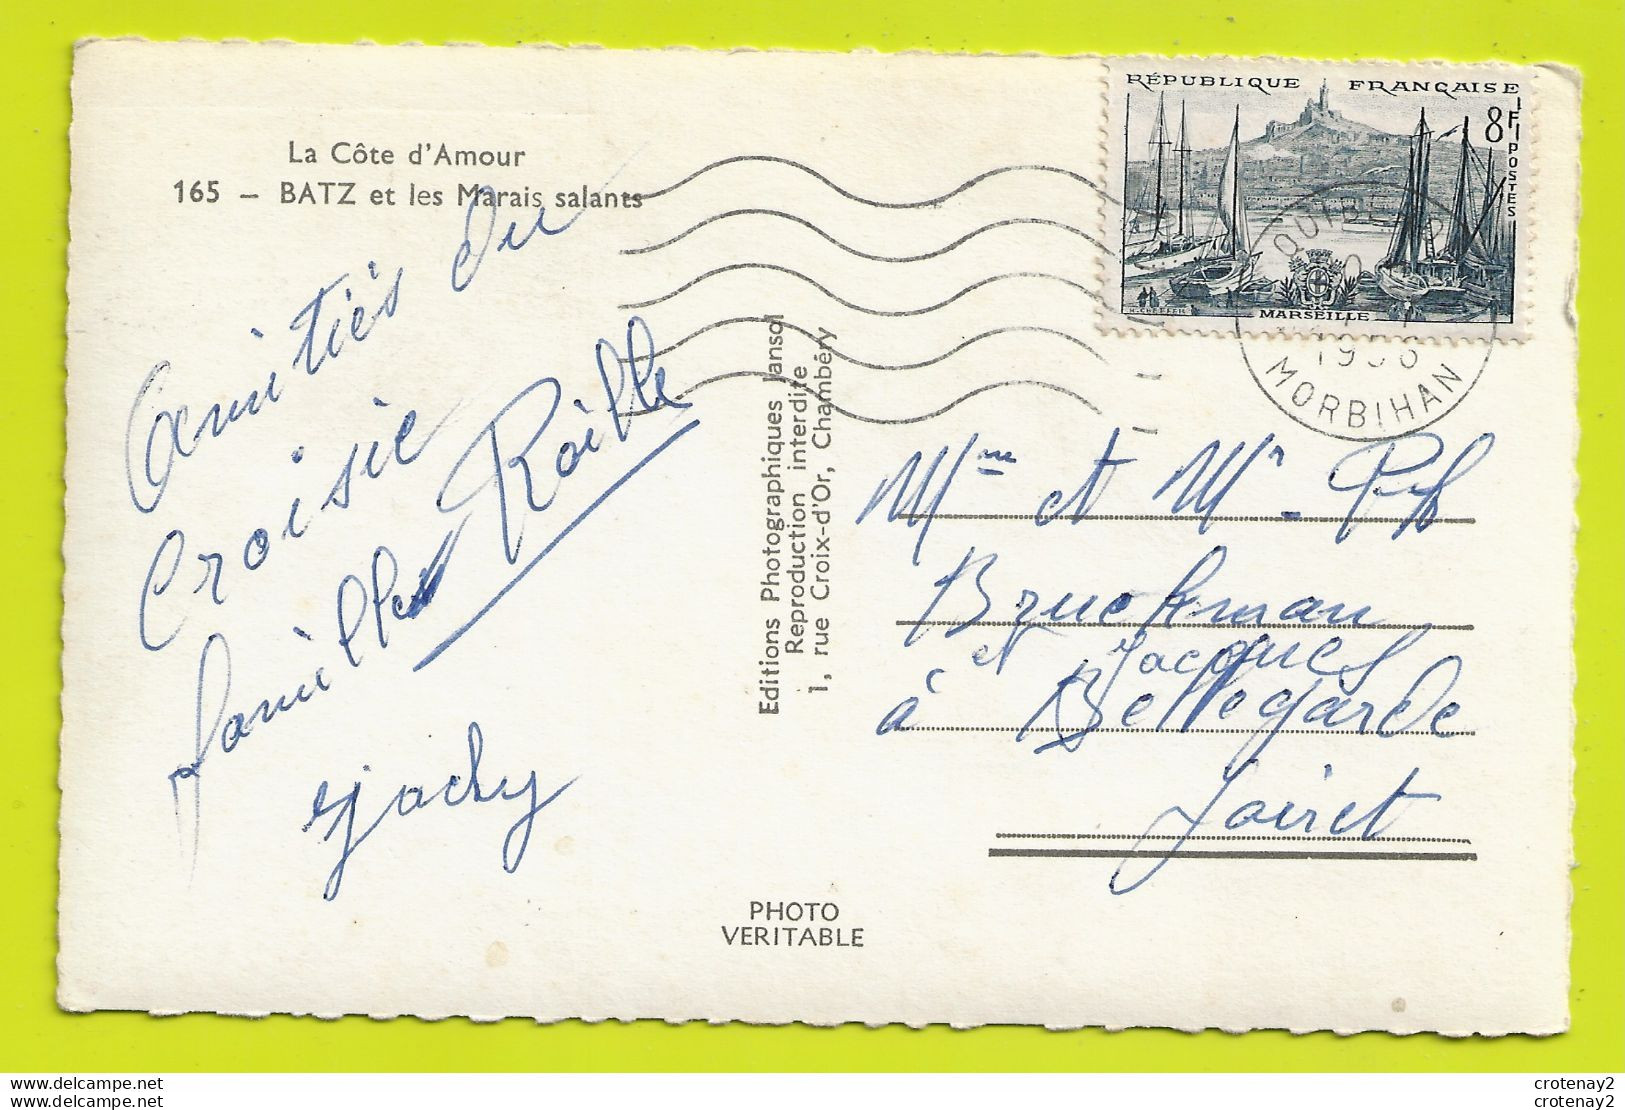 La Côte d'Amour
165 – BATZ et les Marais salants
Amitiés du
Croisic
familles Roille
Jacky
Editions Photographiques Jansol
Reproduction interdite
1, rue Croix-d'Or, Chambéry
PHOTO
VERITABLE
RÉPUBLIQUE FRANÇAISE
8F
POSTES
MARSEILLE
1956
MORBIHAN
Mme et Mr
Bruckman
et Jacques
à Bellegarde
Loiret
www.delcampe.net
www.delcampe.net
crotenay2
crotenay2